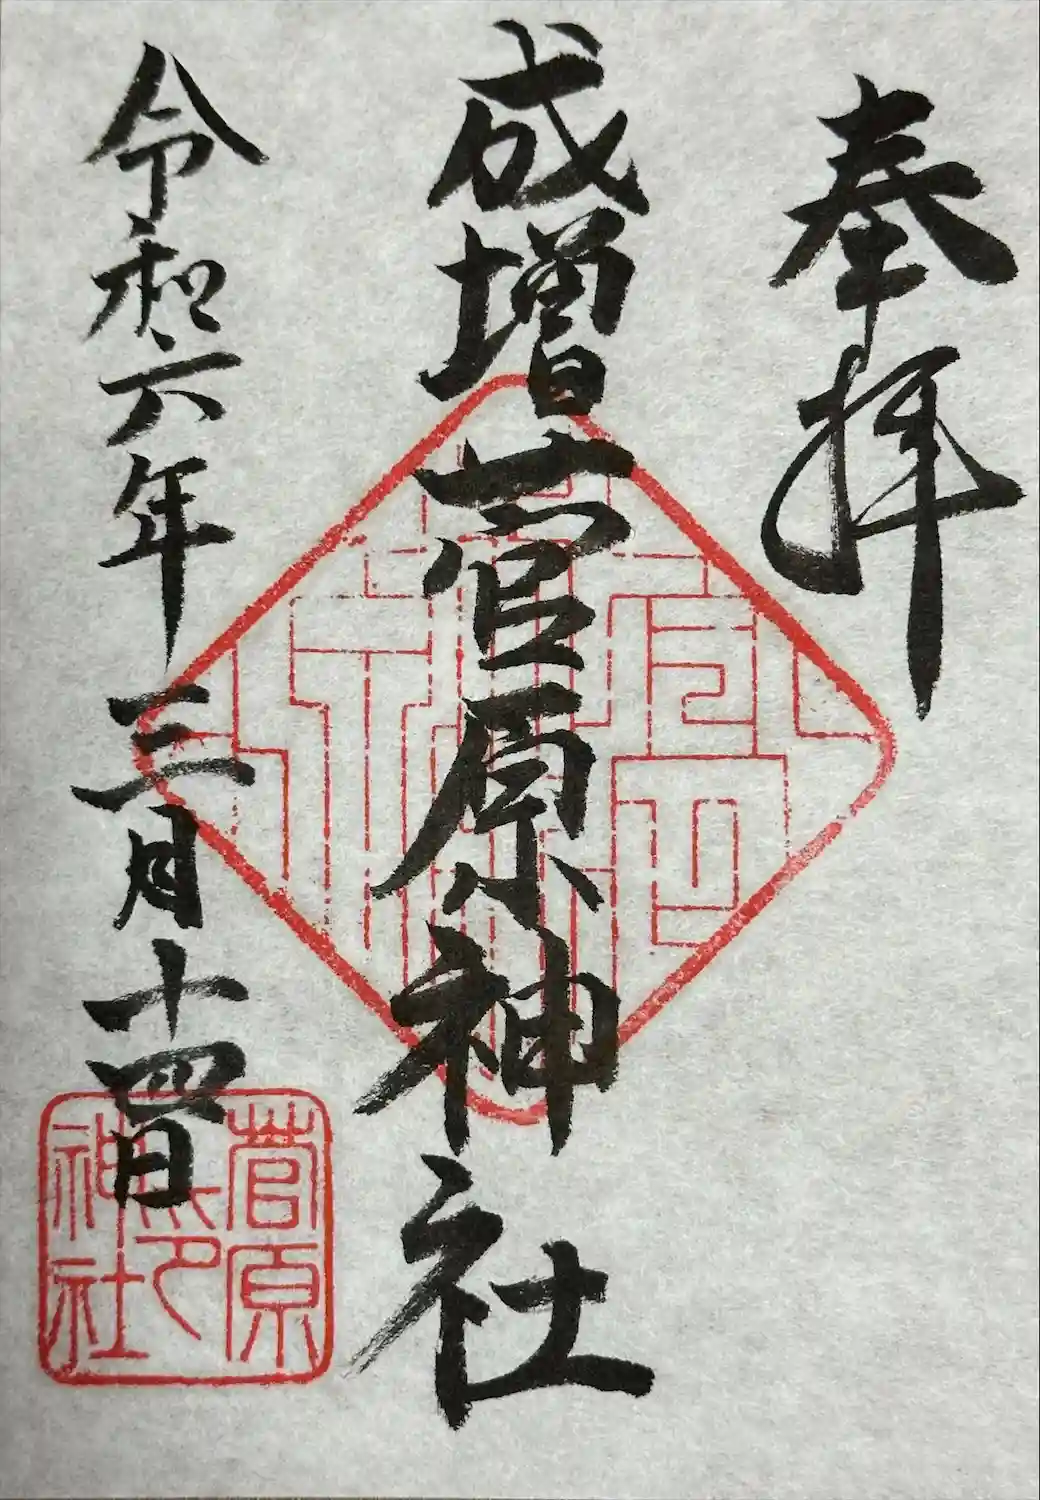 奉拝
成増菅原神社
令和六年三月十四日
菅原
神社
印